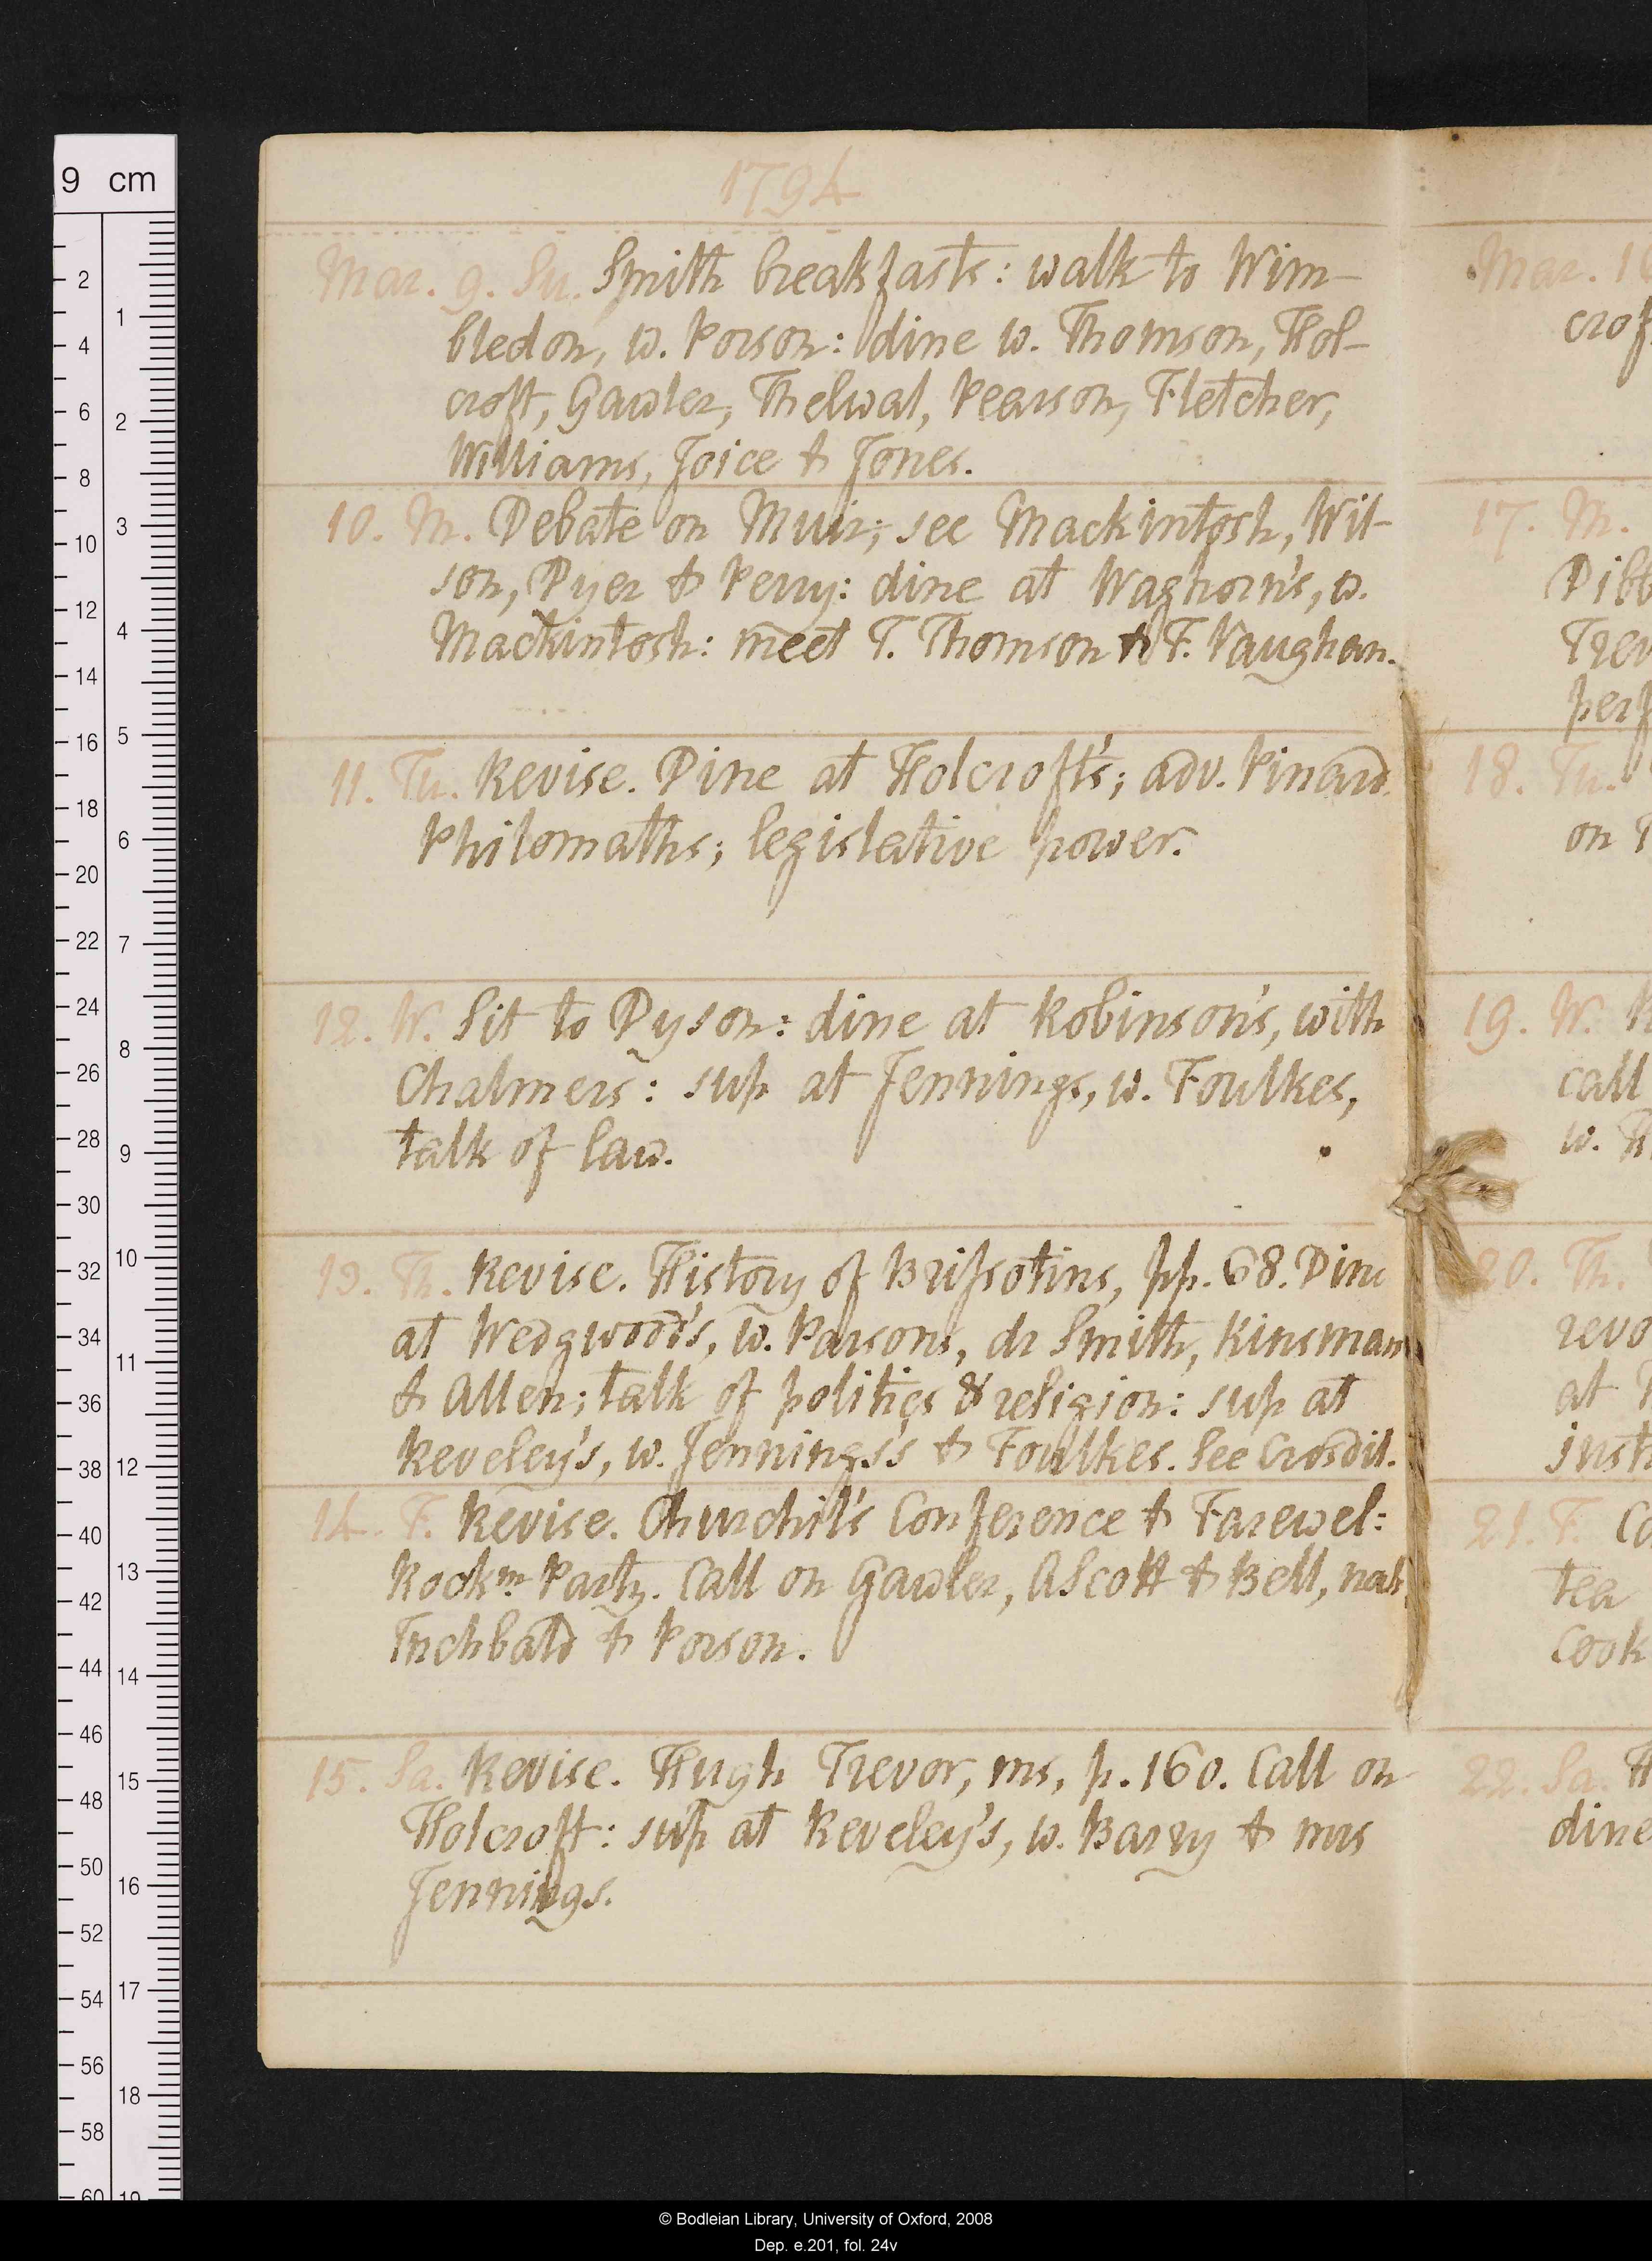 1794
Mar. 9. Su. Smith breakfasts: walk to Wim-
bledon, w. Porson: dine w. Thomson, Hol-
croft, Gawler, Thelwal, Pearson, Fletcher,
Williams, Joice & Jones.
10. M. Debate on Muir; see Mackintosh, Wil-
son, Dyer & Perry: dine at Waghorn's, w.
Mackintosh: meet T. Thomson & F. Vaughan.
11. Tu. Revise. Dine at Holcroft's; adv. Pinard.
Philomaths; legislative power.
12. W. Sit to Dyson: dine at Robinson's, with
Chalmers: sup at Jennings, w. Foulkes,
talk of law.
13. Th. Revise. History of Brissotins, pp. 68. Dine
at Wedgwood's, w. Parsons, dr Smith, Kinsman
& Allen; talk of politics & religion: sup at
Reveley's, w. Jennings's & Foulkes. See Crosdil.
14. F. Revise. Churchil's Conference & Farewel:
Rockm Party. Call on Gawler, A Scott & Bell, nah;
Inchbald & Porson.
15. Sa. Revise. Hugh Trevor, ms, p. 160. Call on
Holcroft: sup at Reveley's, w. Barry & mrs
Jennings.
Mar. 16
crof
17. M.
Dibb
Trev
perf
18. Tu.
on
19. W.
call
w. H
20. Th.
revo
at
inst
21. F. Ca
tea
Cook
22. Sa. H
dine
9 cm
2
4
6
8
10
12
14
16
18
20
22
24
26
28
30
32
34
36
38
40
42
44
46
48
50
52
54
56
58
60
1
2
3
4
5
6
7
8
9
10
11
12
13
14
15
16
17
18
19
© Bodleian Library, University of Oxford, 2008
Dep. e.201, fol. 24v